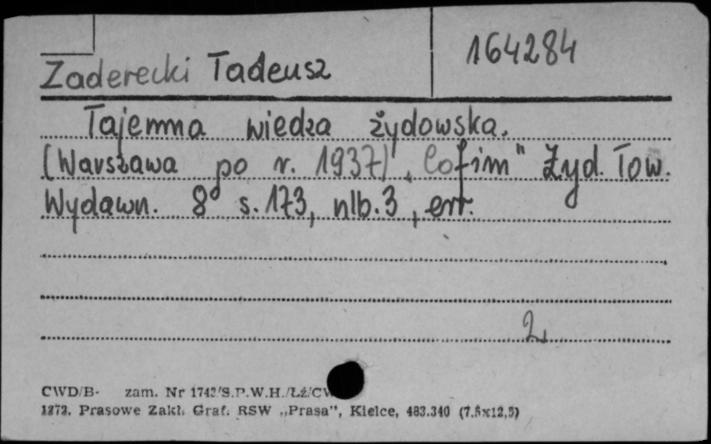 164284
Zaderecki Tadeusz
Tajemna wiedza żydowska.
(Warszawa po r. 1937) „Cofim" Żyd. Tow.
Wydawn. 8° s. 173, nlb. 3, err.
2
CWD/B- zam. Nr 1742/S.P.W.H./Łź/CW
1272. Prasowe Zakł. Graf. RSW „Prasa", Kielce, 483.340 (7,5x12,5)